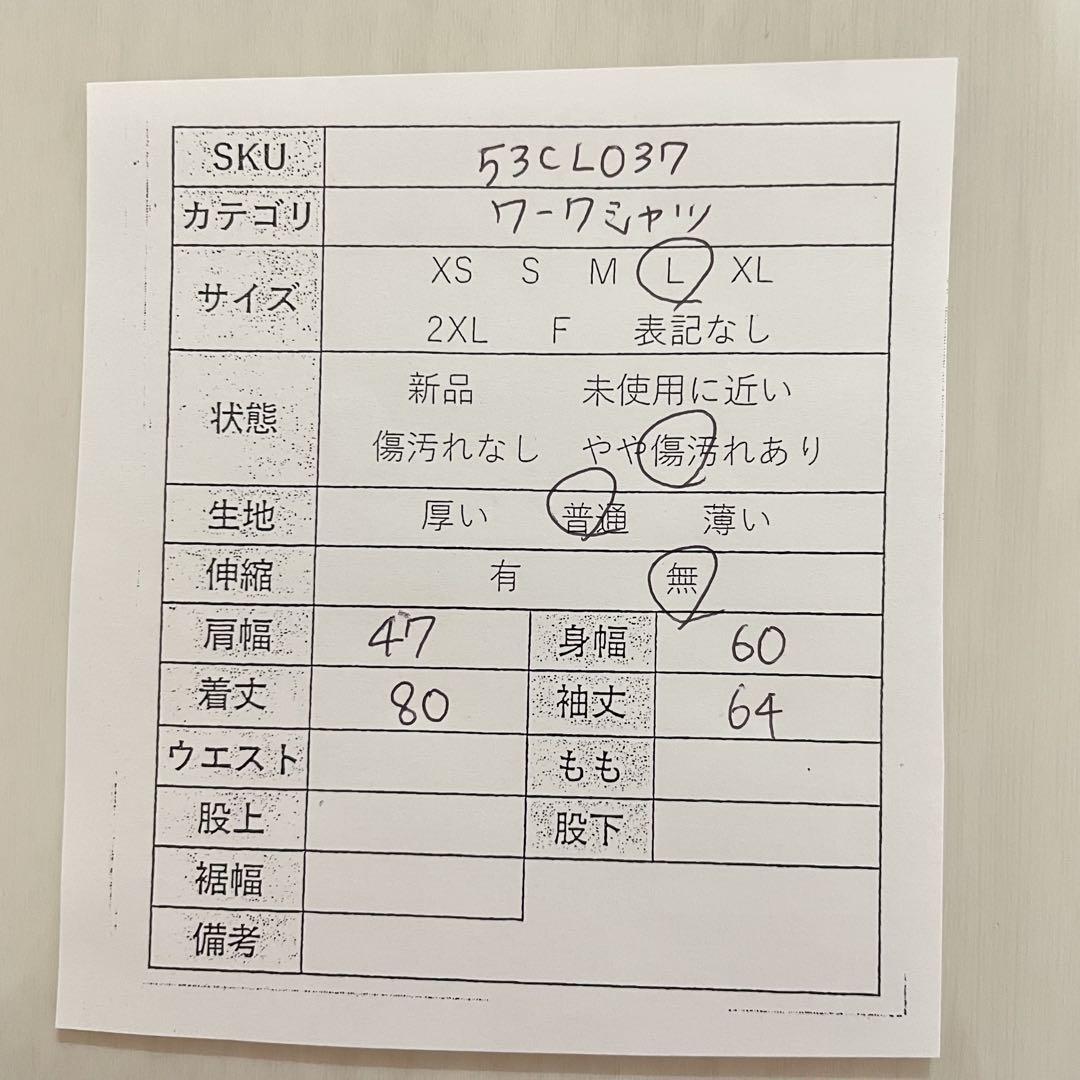 SKU 53CL037
カテゴリ ワークシャツ
サイズ XS S M L XL
2XL F 表記なし
状態 新品 未使用に近い
傷汚れなし やや傷汚れあり
生地 厚い 普通 薄い
伸縮 有 無
肩幅 47 身幅 60
着丈 80 袖丈 64
ウエスト もも
股上 股下
裾幅
備考